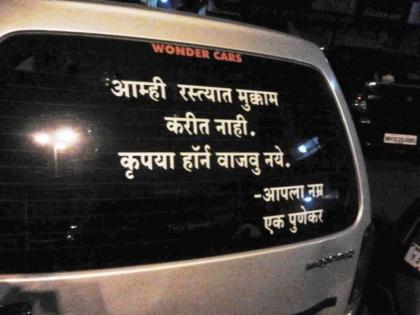 WONDER CARS
आम्ही रस्त्यात मुक्काम
करीत नाही.
कृपया हॉर्न वाजवु नये.
-आपला नम्र
एक पुणेकर